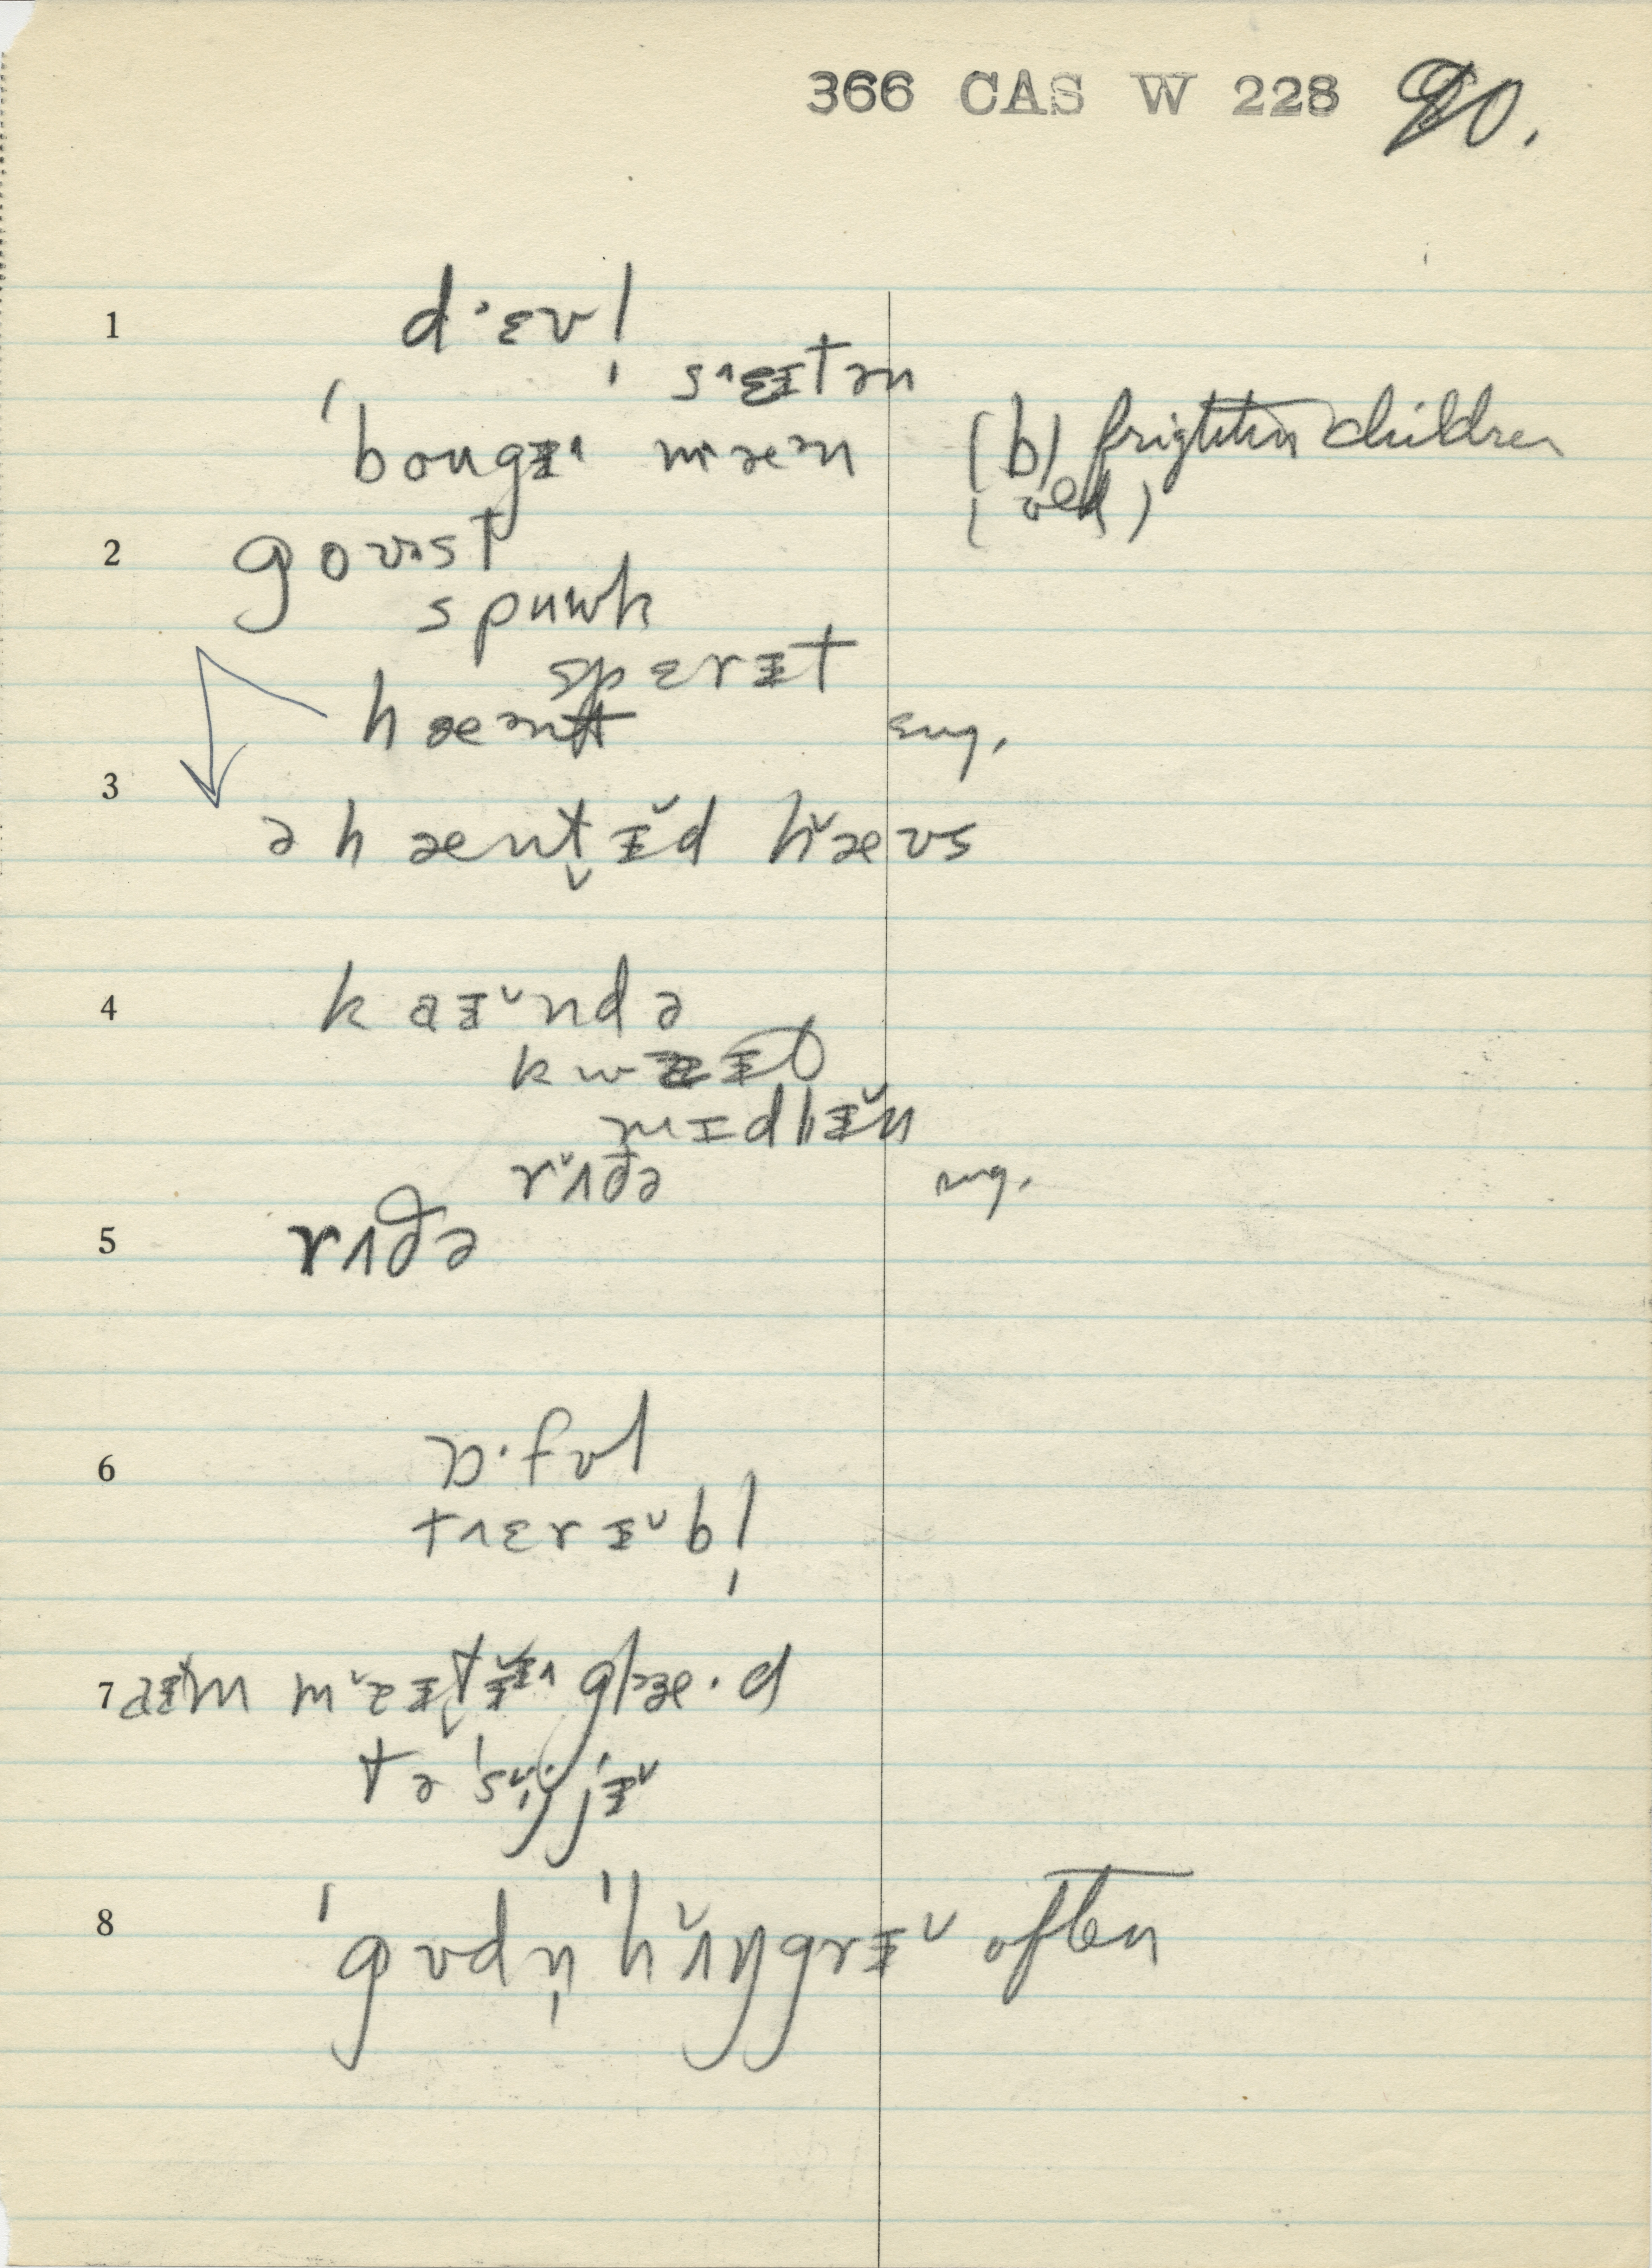 366 CAS W 228 90.
1 d·ɛvl̩
s˄ɛɪtən
ˈbougɪ˄ mæ˄n (b) frighten children
(old)
2 goʊst
spuwk
spɛrɪt
hæ˄nt sug.
3 ə hænt̬ɪ̆d hæ̆ʊs
4 kaɪ˅ndə
kwaɪt
mɪdlɪ̆n
r˅ʌðə sug.
5 rʌðə
6 ɒ·fʊl
t˄ɛrɪ˅bl̩
7 aɪm m˅ɛɪt̬ɪ˄ glæ·d
tə ˈsi˅j jɪ˅
8 ˈgʊdn̩ ˈhʌ̆ŋgrɪ˅ often